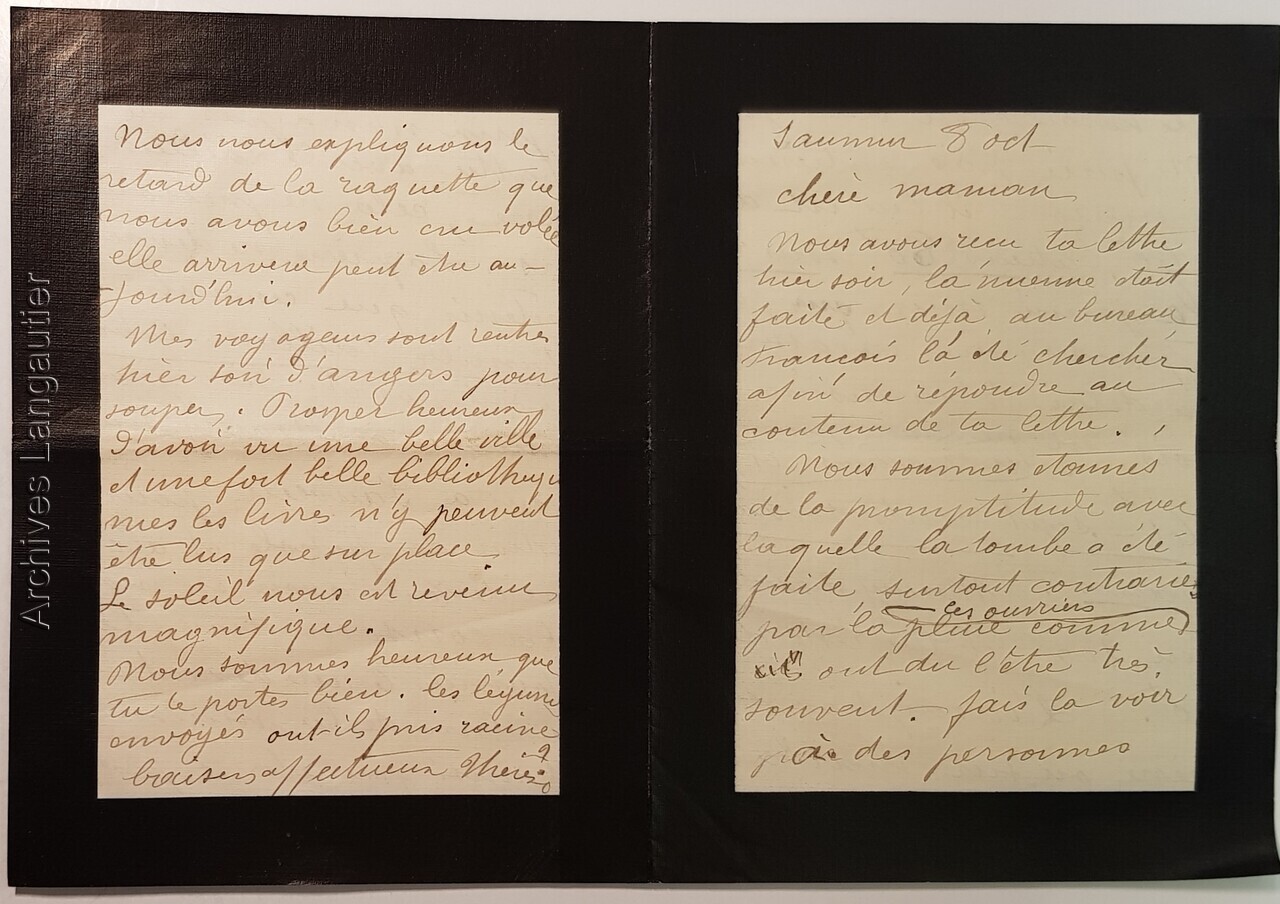 Saumur 8 oct
chère maman
Nous avons recu ta lettre
hier soir, la mienne était
faite et déjà au bureau
Francois l'a été chercher
afin de répondre au
contenu de ta lettre.
Nous sommes etonnés
de la promptitude avec
laquelle la tombe a été
faite surtout contrariés
les ouvriers
par la pluie comme
ont du l'être très
souvent. fais la voir
à des personnes
Nous nous expliquons le
retard de la raquette que
nous avons bien cru volée
elle arrivera peut être au-
jourd'hui.
Mes voyageurs sont rentrés
hier soir d'angers pour
souper. Prosper heureux
d'avoir vu une belle ville
et une fort belle bibliothequ
mes les livres n'y peuvent
être lus que sur place
Le soleil nous est revenu
magnifique.
Nous sommes heureux que
tu te portes bien. les légumes
envoyés ont-ils pris racine
?
baisers affectueux Thérèse
Archives Langautier